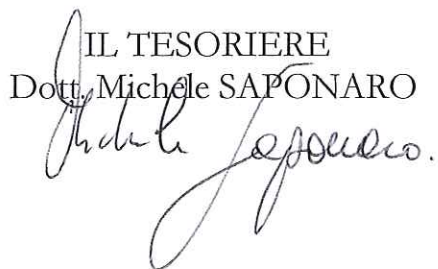 IL TESORIERE
Dott. Michele SAPONARO
Michele Saponaro.